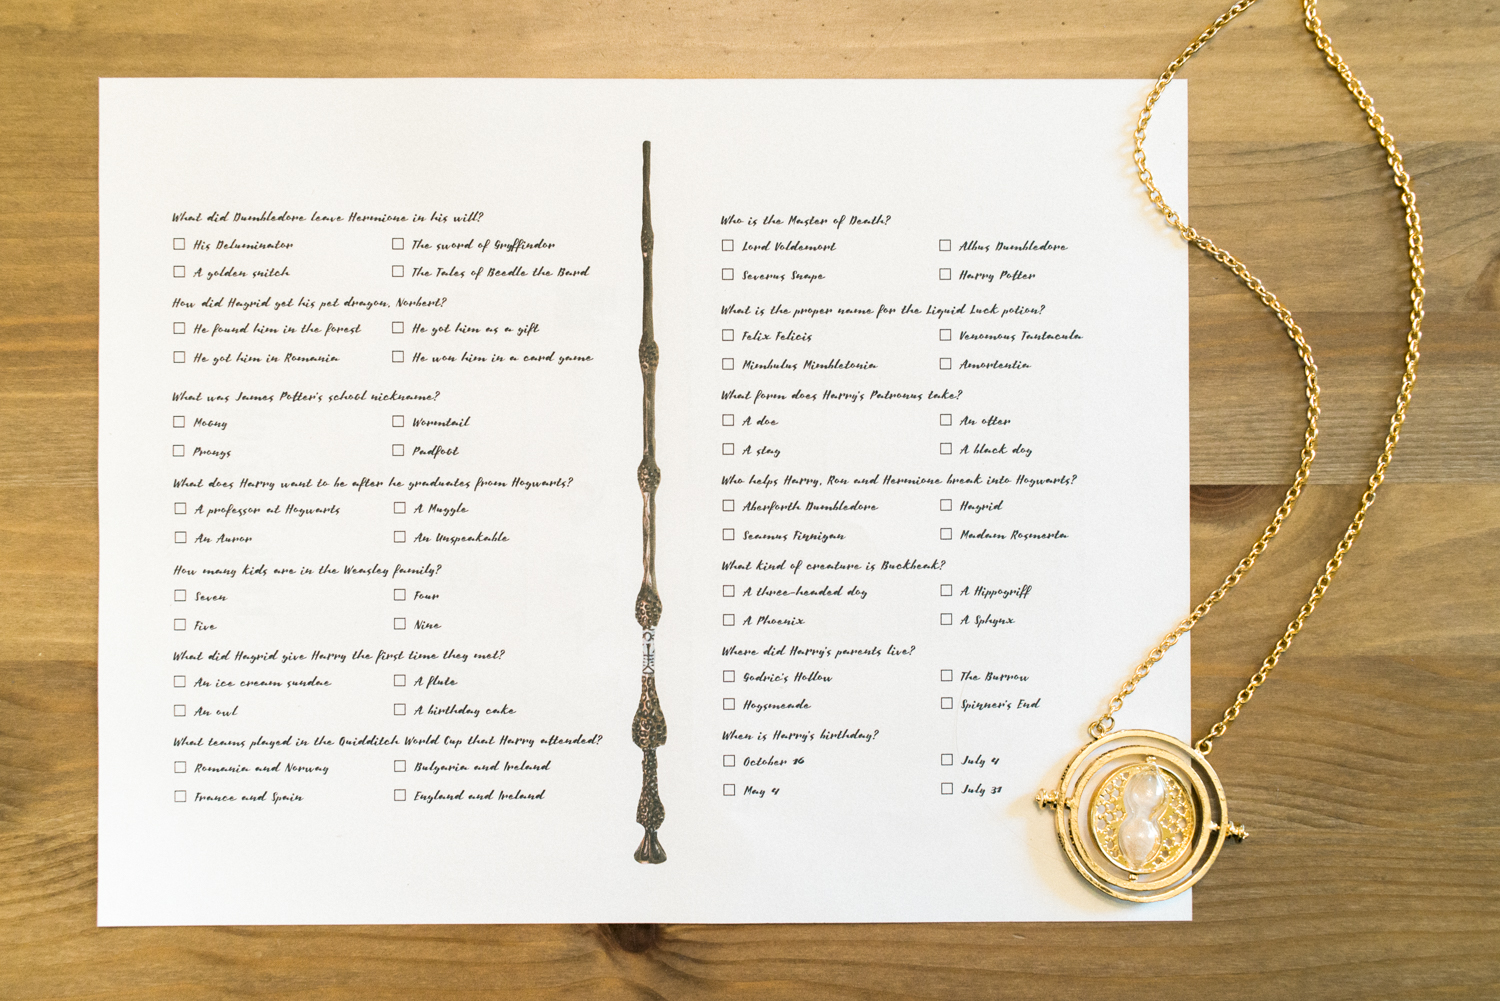 What did Dumbledore leave Hermione in his will?
His Deluminator
The sword of Gryffindor
A golden snitch
The Tales of Beedle the Bard
How did Hagrid get his pet dragon, Norbert?
He found him in the forest
He got him as a gift
He got him in Romania
He won him in a card game
What was James Potter's school nickname?
Moony
Wormtail
Prongs
Padfoot
What does Harry want to be after he graduates from Hogwarts?
A professor at Hogwarts
A Muggle
An Auror
An Unspeakable
How many kids are in the Weasley family?
Seven
Four
Five
Nine
What did Hagrid give Harry the first time they met?
An ice cream sundae
A flute
An owl
A birthday cake
What teams played in the Quidditch World Cup that Harry attended?
Romania and Norway
Bulgaria and Ireland
France and Spain
England and Ireland
Who is the Master of Death?
Lord Voldemort
Albus Dumbledore
Severus Snape
Harry Potter
What is the proper name for the Liquid Luck potion?
Felix Felicis
Venomous Tantacula
Mimbulus Mimbletonia
Amortentia
What form does Harry's Patronus take?
A doe
An otter
A stag
A black dog
Who helps Harry, Ron and Hermione break into Hogwarts?
Aberforth Dumbledore
Hagrid
Seamus Finnigan
Madam Rosmerta
What kind of creature is Buckbeak?
A three-headed dog
A Hippogriff
A Phoenix
A Sphynx
Where did Harry's parents live?
Godric's Hollow
The Burrow
Hogsmeade
Spinner's End
When is Harry's birthday?
October 16
July 4
May 4
July 31